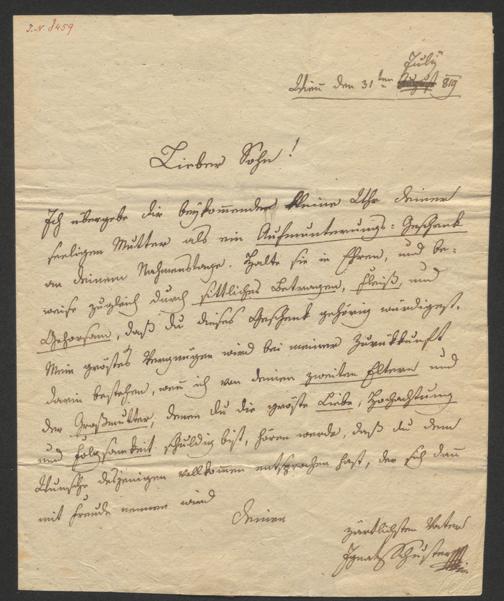 I.N. 8459
July
Wien den 31ten August 819
Lieber Sohn!
Ich übergebe dir beykommende kleine Uhr deiner
seeligen Mutter als ein Aufmunterungs=Geschenk
an deinem Nahmenstage. Halte sie in Ehren, und be=
weise zugleich durch sittliches Betragen, Fleiß, und
Gehorsam, daß du dieses Geschenk gehörig würdigest.
Mein gröstes Vergnügen wird bei meiner Zurückkunft
darin bestehen, wen ich von deinen zweiten Eltern und
der Großmutter, denen du die gröste Liebe, Hochachtung
und Folgsamkeit schuldig bist, hören werde, daß du dem
Wunsche desjenigen vollkommen entsprochen hast, der sich dan
mit Freude nennen wird
deinen
zärtlichsten Vater
Ignatz Schuster